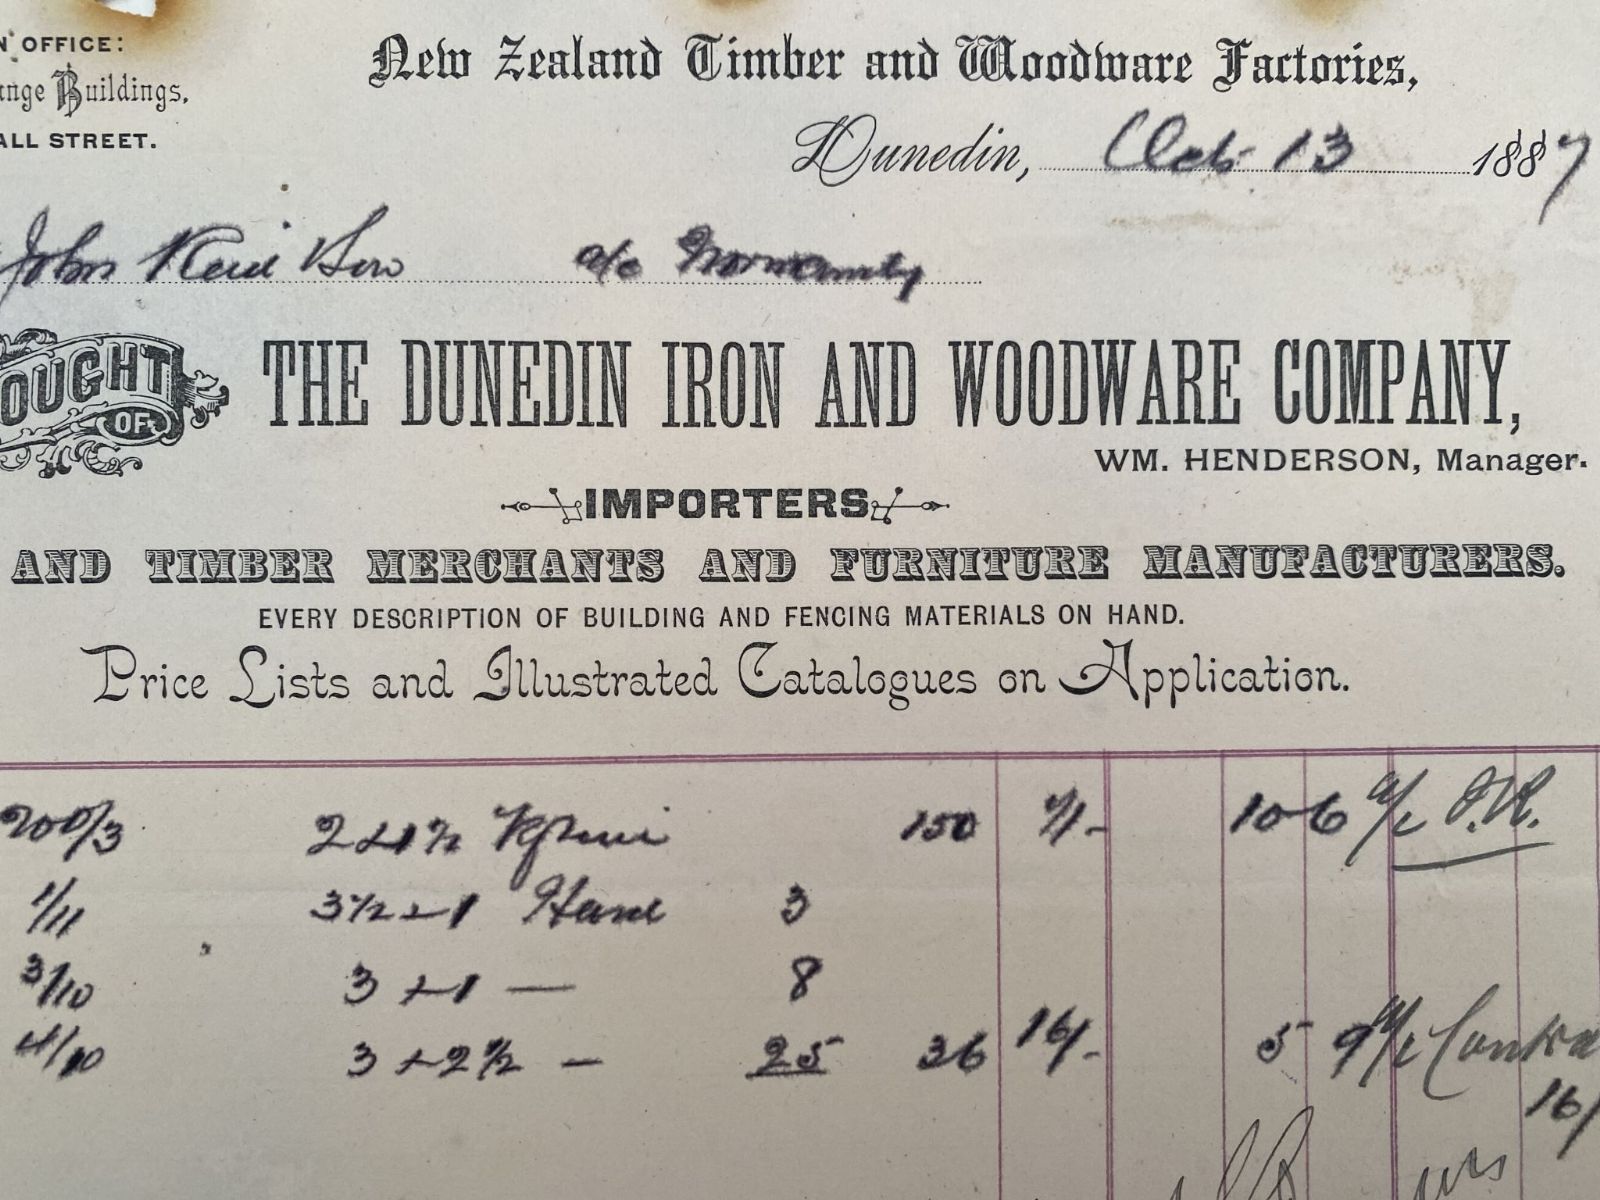 N OFFICE:
New Zealand Timber and Woodware Factories,
nge Buildings,
ALL STREET.
Dunedin, Oct 13 1887
John Reid & Son a/c Normanby
OUGHT OF THE DUNEDIN IRON AND WOODWARE COMPANY,
WM. HENDERSON, Manager.
IMPORTERS
AND TIMBER MERCHANTS AND FURNITURE MANUFACTURERS.
EVERY DESCRIPTION OF BUILDING AND FENCING MATERIALS ON HAND.
Price Lists and Illustrated Catalogues on Application.
200/3 2 x 1½ 150 7/- 10 6 a/c J.R.
1/11 3½ x 1 3
3/10 3 x 1 — 8
4/10 3 x 2½ — 25 36 16/- 5 9 a/c Contra
16/